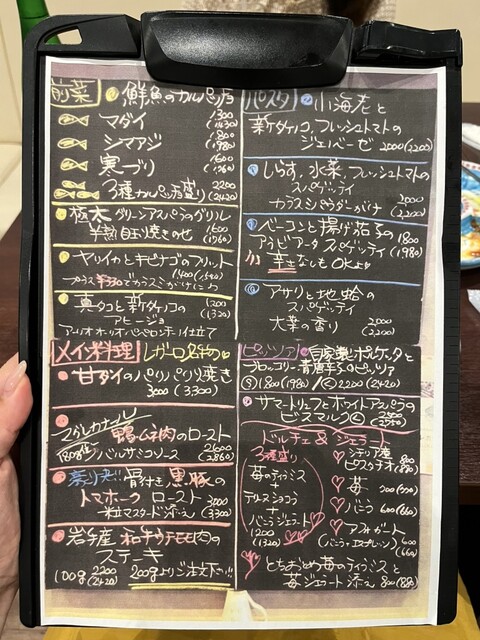 前菜
鮮魚のカルパッチョ
マダイ 1300
(1430)
シマアジ 1800
(1980)
寒ブリ 1600
(1760)
3種カルパッチョ盛り 2200
(2420)
栃木グリーンアスパラのグリル
半熟目玉焼きのせ 1600
(1760)
ヤリイカとキビナゴのフリット
1400 (1540)
プラス¥330でカラスミがけに
真タコと新タケノコの 1200
(1320)
アヒージョ
アーリオオーリオペペロンチーノ仕立て
メイン料理
レガーロ名物の
甘ダイのパリパリ焼き
3000 (3,300)
鴨ムネ肉のロースト
180g位 バルサミコソース 2600
(2860)
骨付き黒豚の
トマホーク ロースト 3000
粒マスタード添え (3300)
岩手産 和牛ウチモモ肉の
ステーキ
100g 2200
(2420)
200gよりご注文下さい!!
パスタ
小海老と
新タケノコ、フレッシュトマトの
ジェノベーゼ 2000 (2200)
しらす、水菜、フレッシュトマトの
スパゲッティ
カラスミパウダーがけ 2000
(2200)
ベーコンと揚げ茄子の 1800
アラビアータ スパゲッティ (1980)
辛さなしもOKよ
アサリと地蛤の
スパゲッティ
大葉の香り 2000
(2200)
ピッツァ
自家製ポルケッタと
ブロッコリー、青唐辛子のピッツァ
S 1800 (1980) / L 2200 (2420)
サマートリュフとホワイトアスパラの
ビスマルク L
ドルチェ & ジェラート
3種盛り
苺のティラミス
+
テリーヌショコラ
+
バニラジェラート
1200
(1320)
シチリア産
ピスタチオ 800
(880)
苺
バニラ 600 (660)
アフォガート
(バニラ+エスプレッソ) 600
(660)
とちおとめ苺のティラミスと
苺ジェラート添え 800 (880)